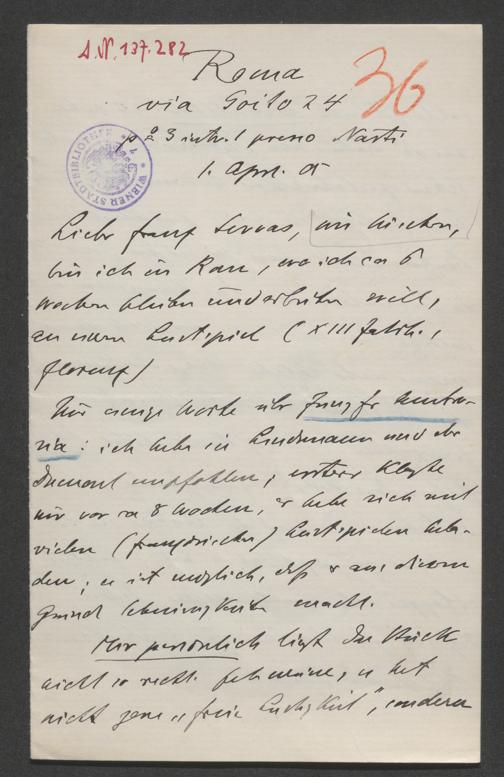 A.N. 137.282
36
Roma
via Goito 24
p 2 3 int. 1 presso Nasti
1. Apr. 05
WIENER STADTBIBLIOTHEK
Lieber Franz Servaes, wir
bin ich in Rom, wo ich ca 6
Wochen bleiben und arbeiten will,
an neuem Lustspiel (XIII Jahrh.,
Florenz)
Nur einige Worte über Jungfr Ambro-
sia: ich habe sie Lindemann und der
Dumont empfohlen, ersterer klagte
mir vor ca 8 Wochen, er habe sich mit
vielen (französischen) Lustspielen bela-
den; es ist möglich, daß er aus diesem
Grund Schwierigkeiten macht.
Mir persönlich liegt das Stück
nicht so recht. es hat
nicht jene „freie Lustigkeit", sondern